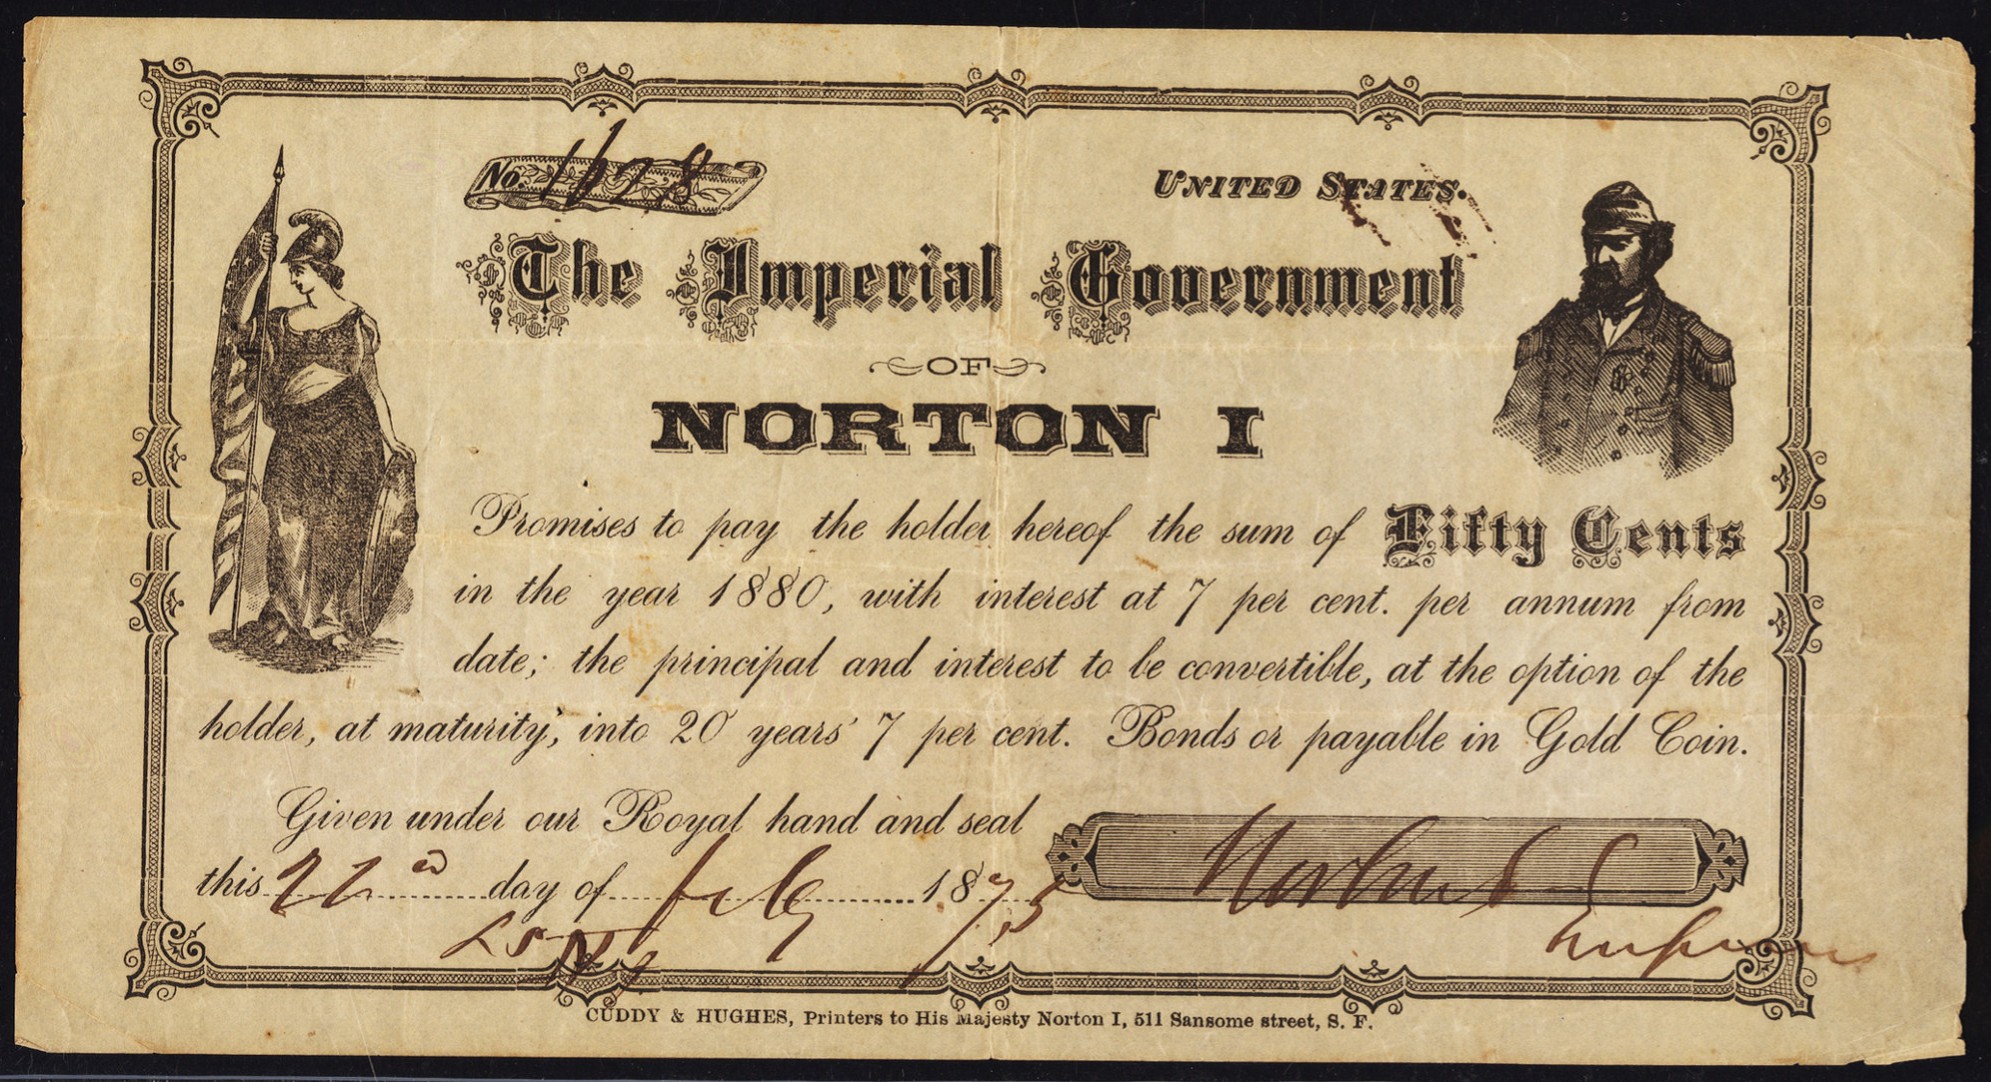 No. 1628
UNITED STATES.
The Imperial Government
OF
NORTON I
Promises to pay the holder hereof the sum of Fifty Cents
in the year 1880, with interest at 7 per cent. per annum from
date; the principal and interest to be convertible, at the option of the
holder, at maturity, into 20 years' 7 per cent. Bonds or payable in Gold Coin.
Given under our Royal hand and seal
this 22nd day of 1875
Norton I
Emperor
CUDDY & HUGHES, Printers to His Majesty Norton I, 511 Sansome street, S. F.